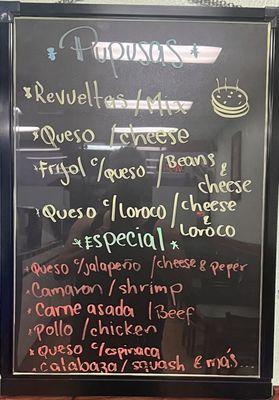 * Pupusas *
* Revueltas / Mix
* Queso / cheese
* Frijol c/ queso / Beans & cheese
* Queso c/ Loroco / cheese & Loroco
* Especial *
* Queso c/ jalapeño / cheese & peper
* Camaron / shrimp
* Carne asada / Beef
* Pollo / chicken
* Queso c/ espinaca
* Calabaza / squash & más...